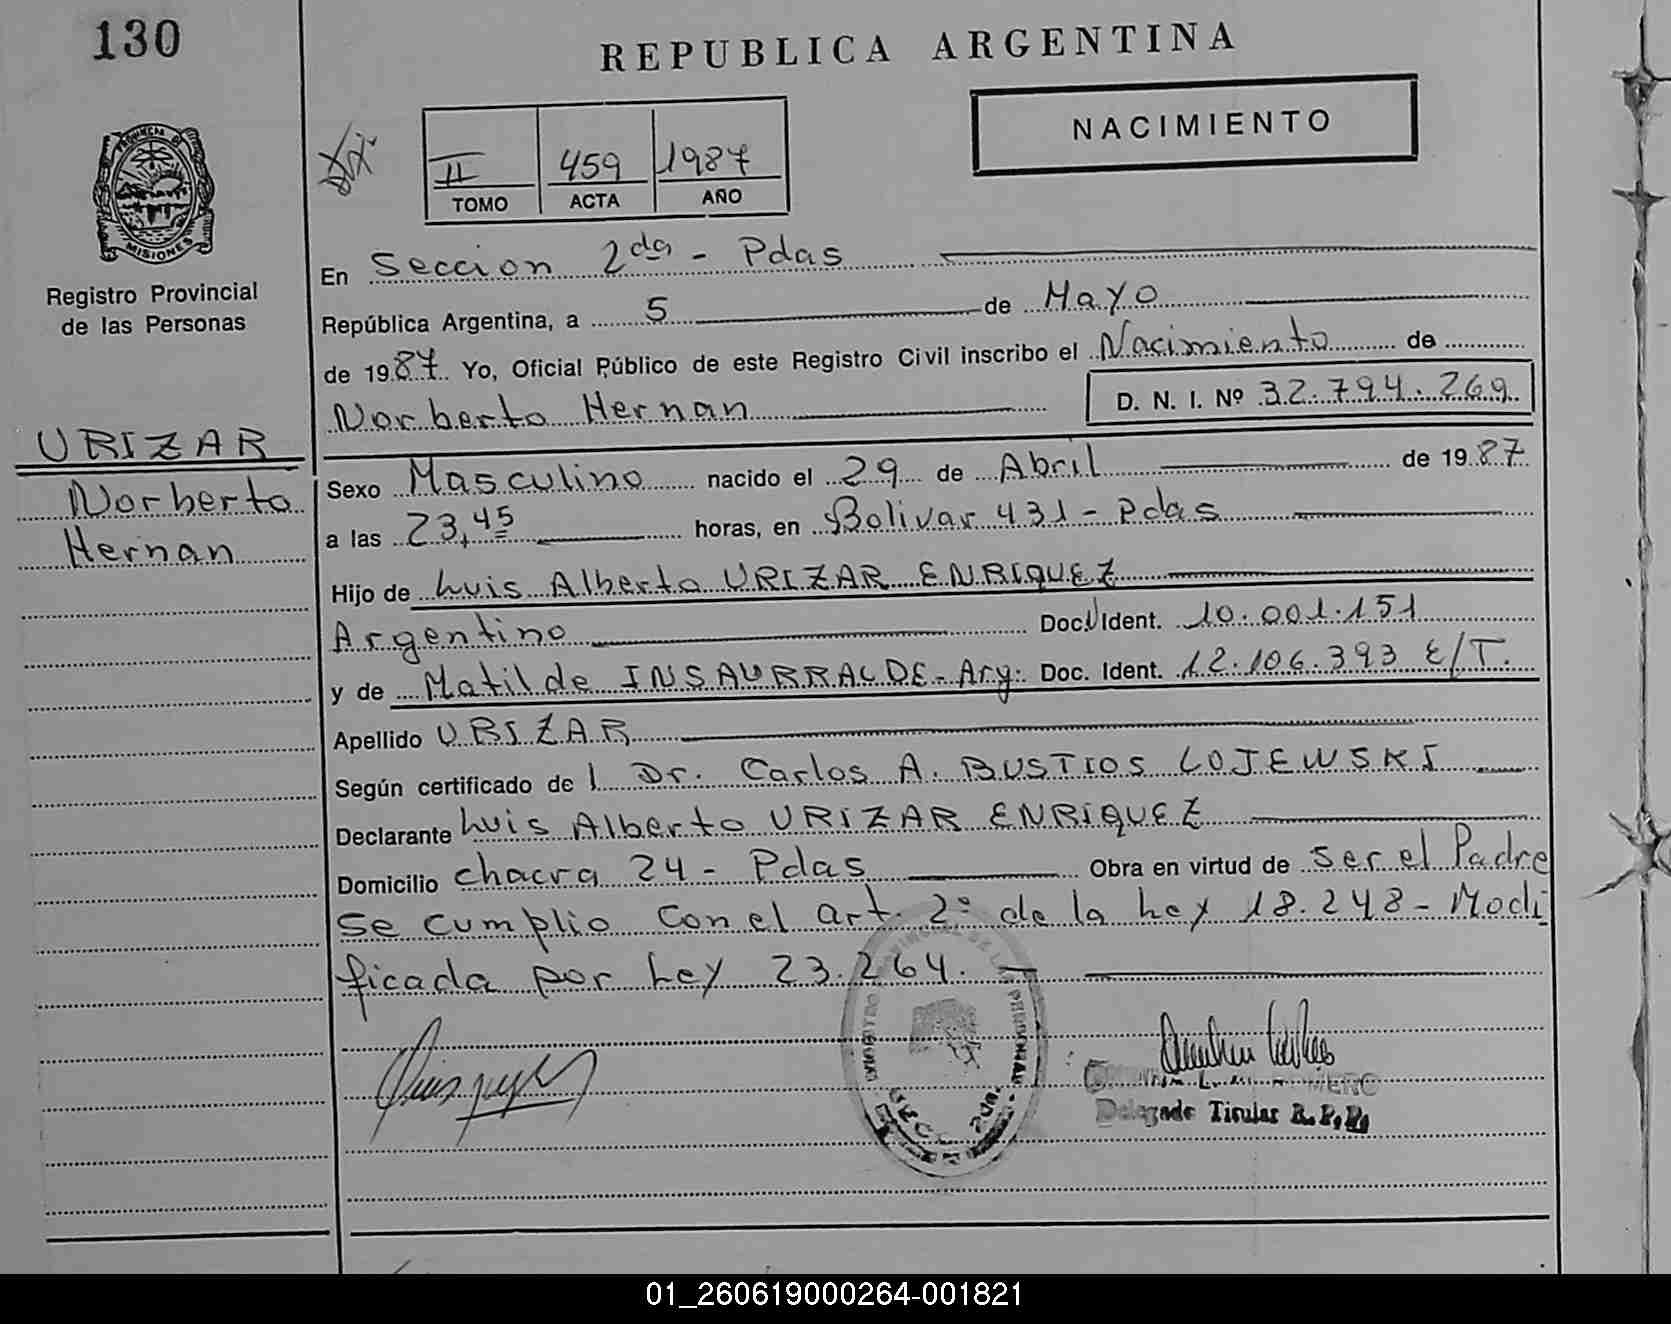 130
REPUBLICA ARGENTINA
NACIMIENTO
II 459 1987
TOMO ACTA AÑO
PROVINCIA DE
MISIONES
Registro Provincial
de las Personas
En Seccion 2da - Pdas
República Argentina, a 5 de Mayo
de 1987 Yo, Oficial Público de este Registro Civil inscribo el Nacimiento de
Norberto Hernan D. N. I. Nº 32.794.269
URIZAR
Norberto
Hernan
Sexo Masculino nacido el 29 de Abril de 1987
a las 23,45 horas, en Bolivar 431 - Pdas
Hijo de Luis Alberto URIZAR ENRIQUEZ
Argentino Doc. Ident. 10.001.151
y de Matilde INSAURRALDE - Arg. Doc. Ident. 12.106.393 E/T.
Apellido URIZAR
Según certificado de l Dr. Carlos A. BUSTIOS LOJEWSKI
Declarante Luis Alberto URIZAR ENRIQUEZ
Domicilio chacra 24 - Pdas Obra en virtud de ser el Padre
se cumplio con el art. 2º de la Ley 18.248 - Modi
ficada por Ley 23.264.
Delegado Titular R.P.P.
01_260619000264-001821